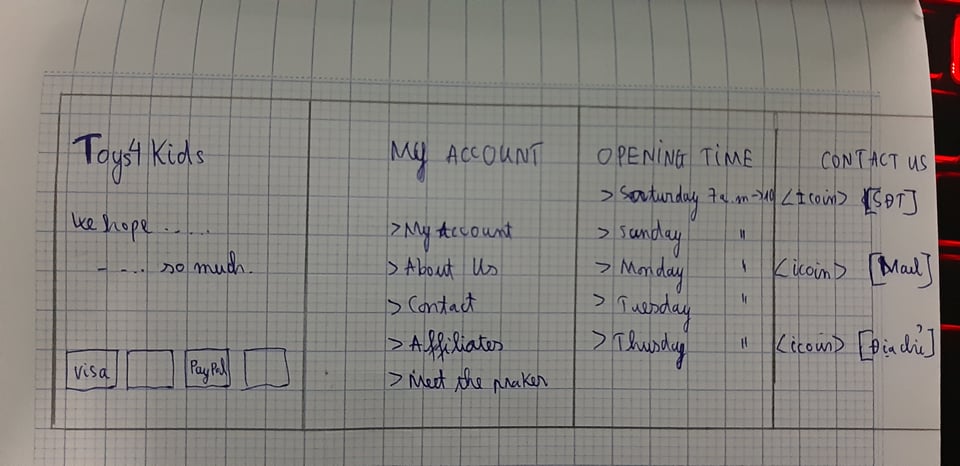 Toys4Kids
We hope .....
- - ... so much.
visa
PayPal
MY ACCOUNT
> My Account
> About Us
> Contact
> Affiliates
> Meet the maker
OPENING TIME
> Saturday 7a.m->10
> Sunday "
> Monday "
> Tuesday "
> Thusday "
CONTACT US
<Icoin> [SĐT]
<icoin> [Mail]
<icoin> [Địa chỉ]